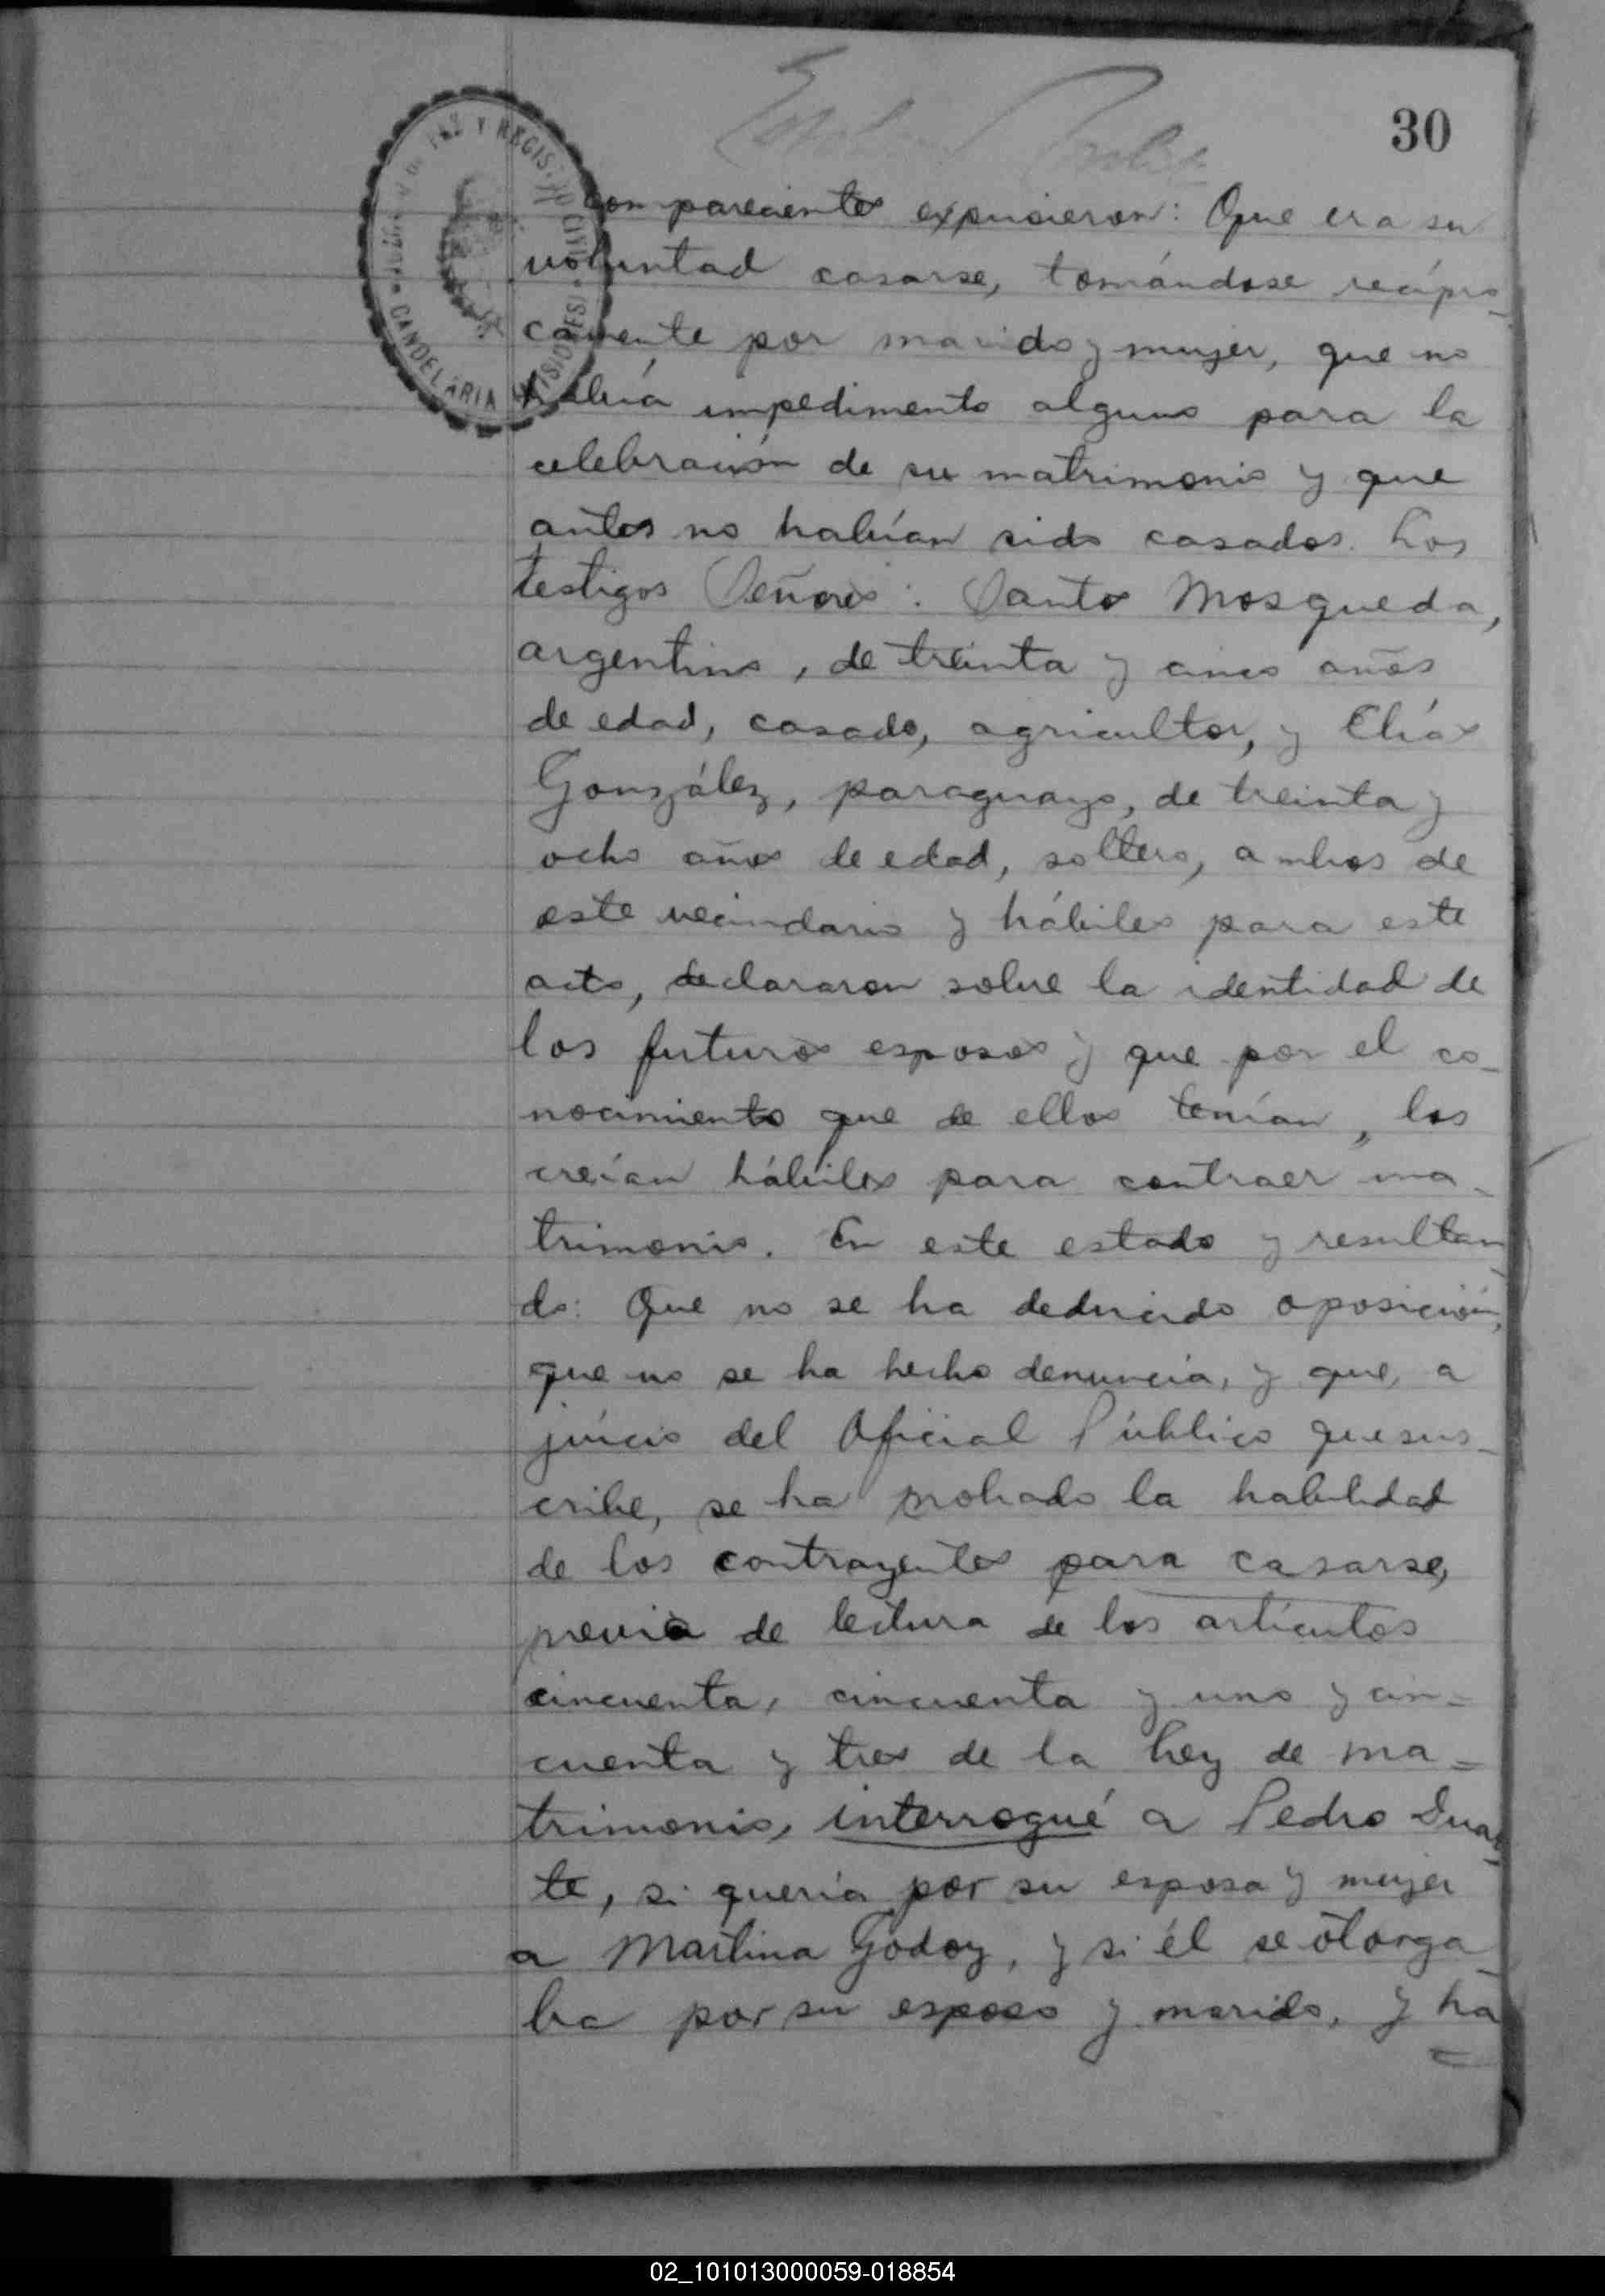 30
JUZGADO DE PAZ Y REGISTRO CIVIL
CANDELARIA (MISIONES)
comparecientes expusieron: Que era su
voluntad casarse, tomándose recípro-
camente por marido y mujer, que no
había impedimento alguno para la
celebración de su matrimonio y que
antes no habían sido casados. Los
testigos Señores: Santos Mosqueda,
argentino, de treinta y cinco años
de edad, casado, agricultor, y Elías
González, paraguayo, de treinta y
ocho años de edad, soltero, ambos de
este vecindario y hábiles para este
acto, declararon sobre la identidad de
los futuros esposos y que por el co-
nocimiento que de ellos tenían, los
creían hábiles para contraer ma-
trimonio. En este estado y resultan-
do: Que no se ha deducido oposición,
que no se ha hecho denuncia, y que, a
juicio del Oficial Público que sus-
cribe, se ha probado la habilidad
de los contrayentes para casarse,
previa de lectura de los artículos
cincuenta, cincuenta y uno y cin=
cuenta y tres de la Ley de ma=
trimonio, interrogué a Pedro Duar-
te, si quería por su esposa y mujer
a Martina Godoy, y si él se otorga-
ba por su esposo y marido, y ha
02_101013000059-018854